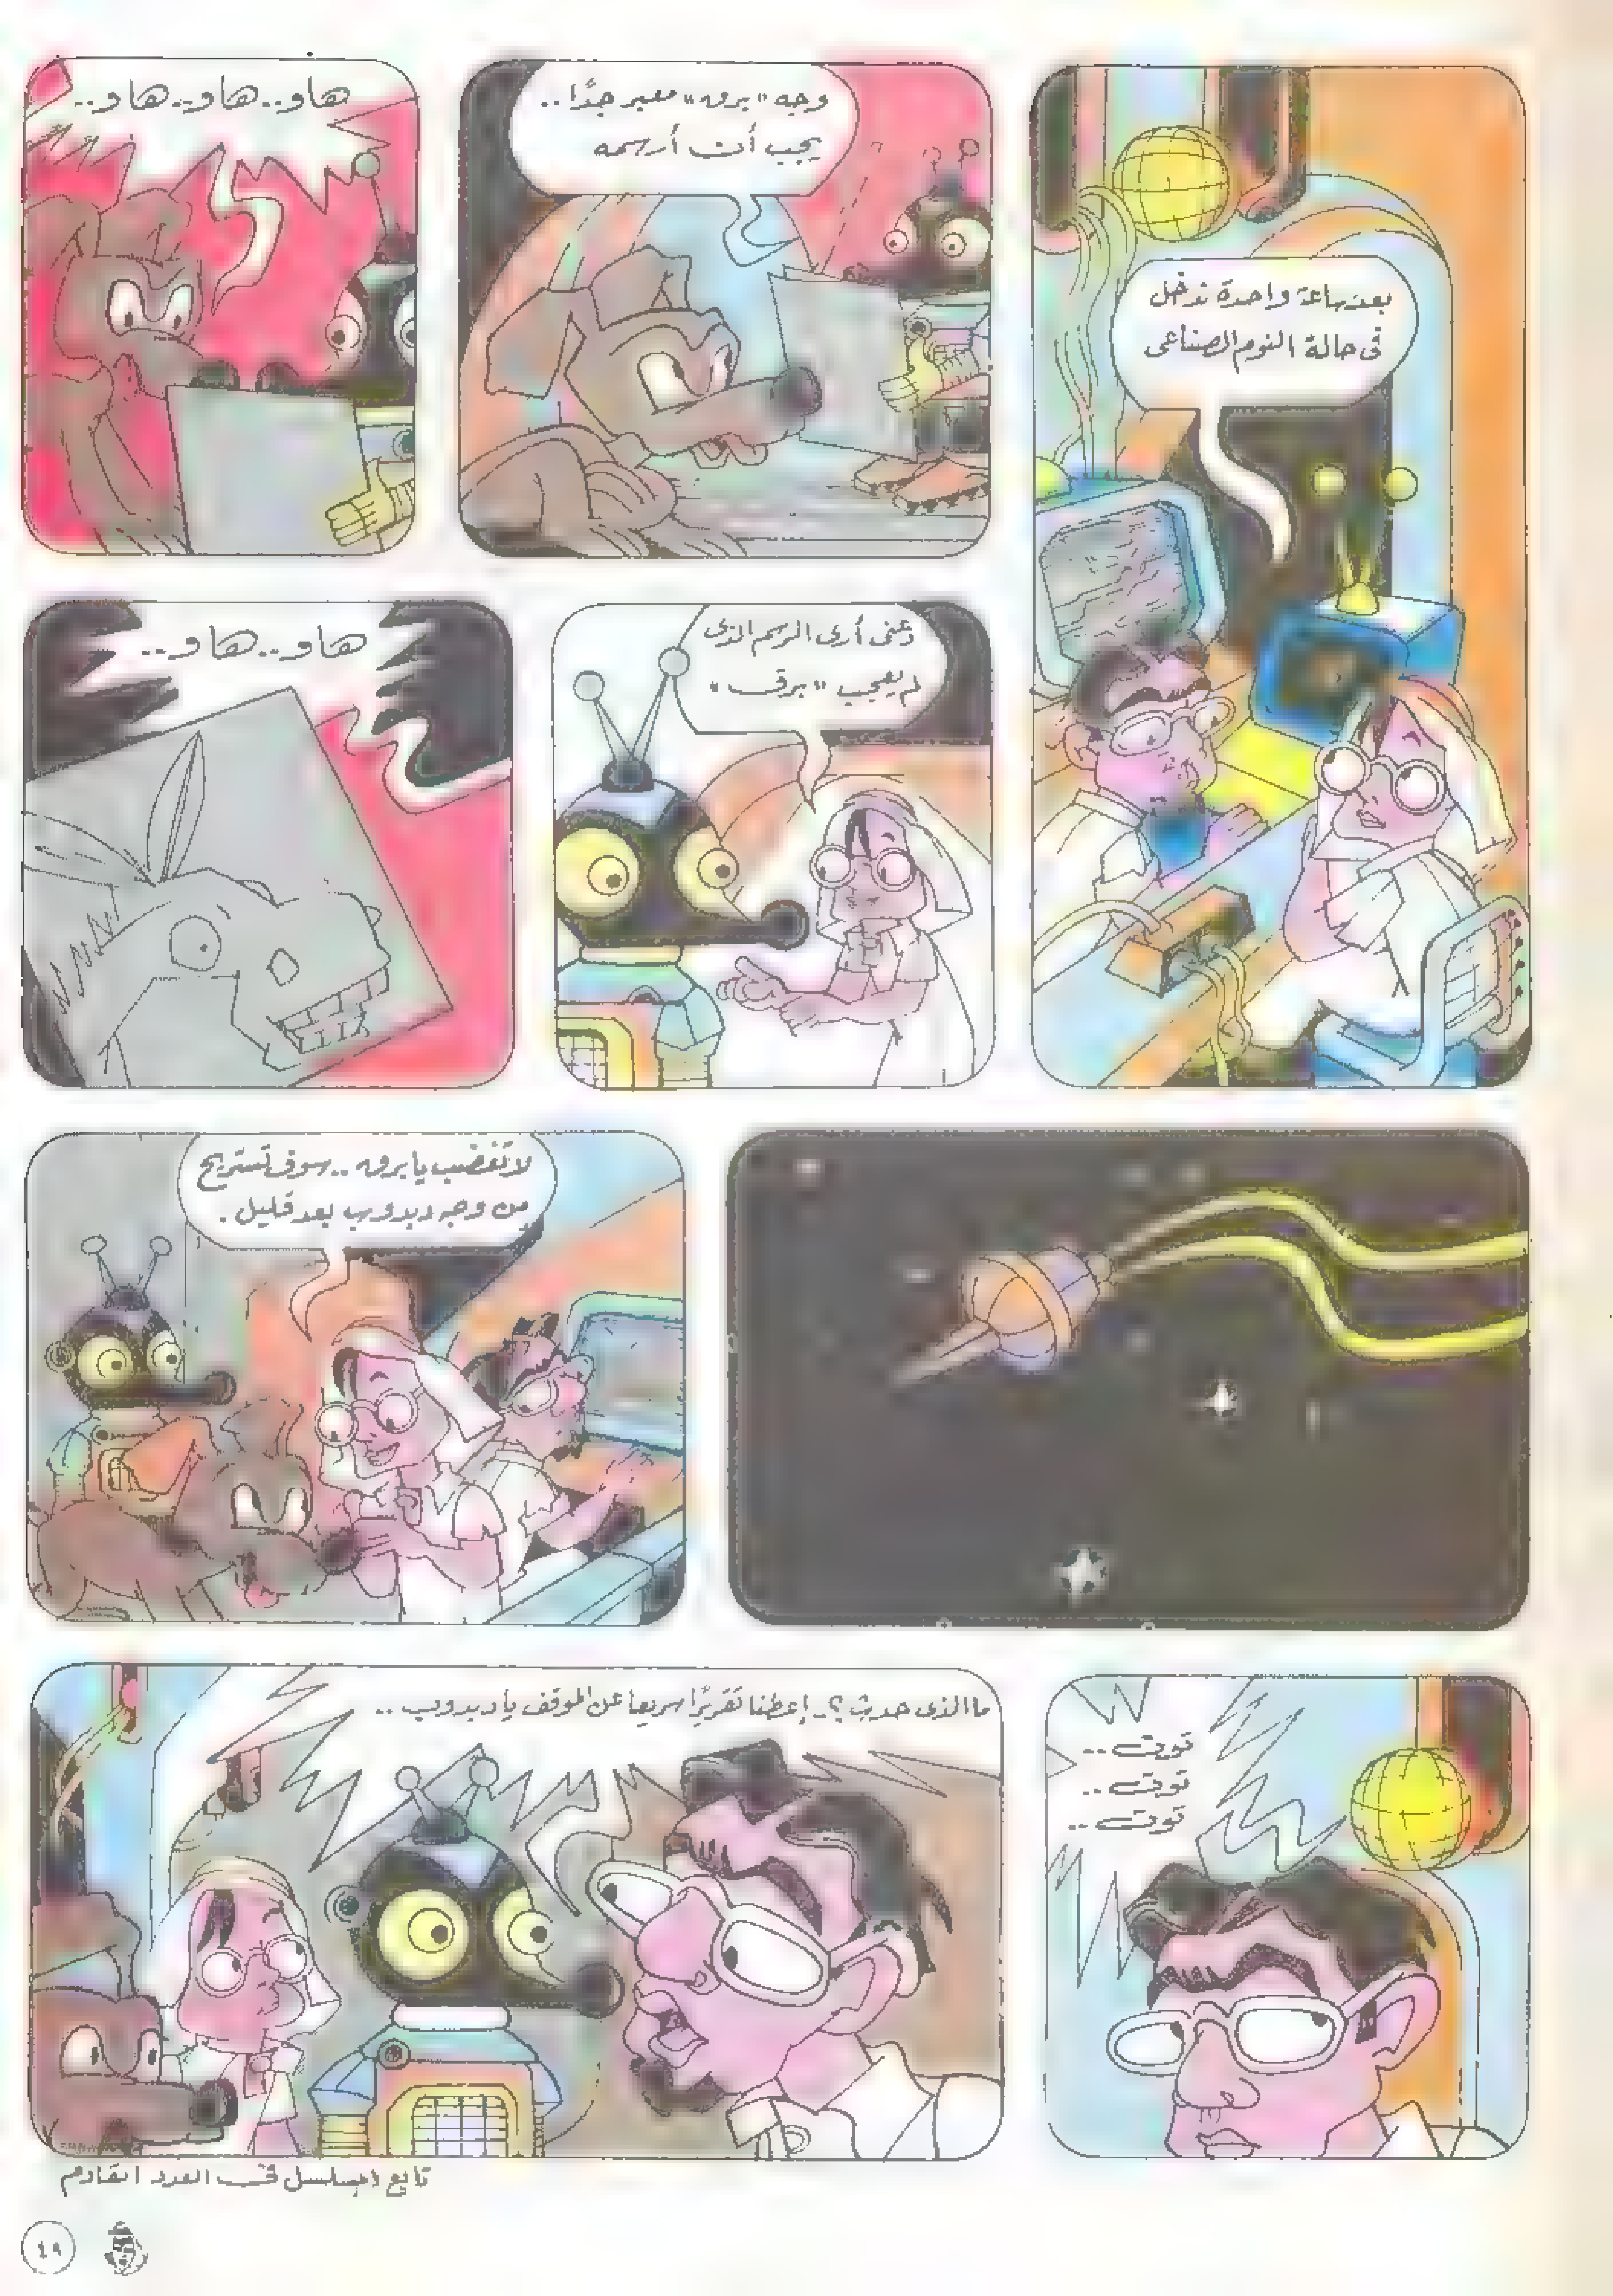 بعد ساعة واحدة ندخل
فى حالة النوم الصناعى
وجه «برق» معبر جدًا..
يجب أن أرسمه
هاو..هاو..هاو..
دعنى أرى الرسم الذى
لم يعجب «برق»
هاو..هاو..
لا تغضب يا برق.. سوف تستريح
من وجه ديدوب بعد قليل.
توت..
توت..
توت..
ما الذى حدث؟.. إعطنا تقريرًا سريعا عن الموقف يا ديدوب..
تابع المسلسل فى العدد القادم
٤٩